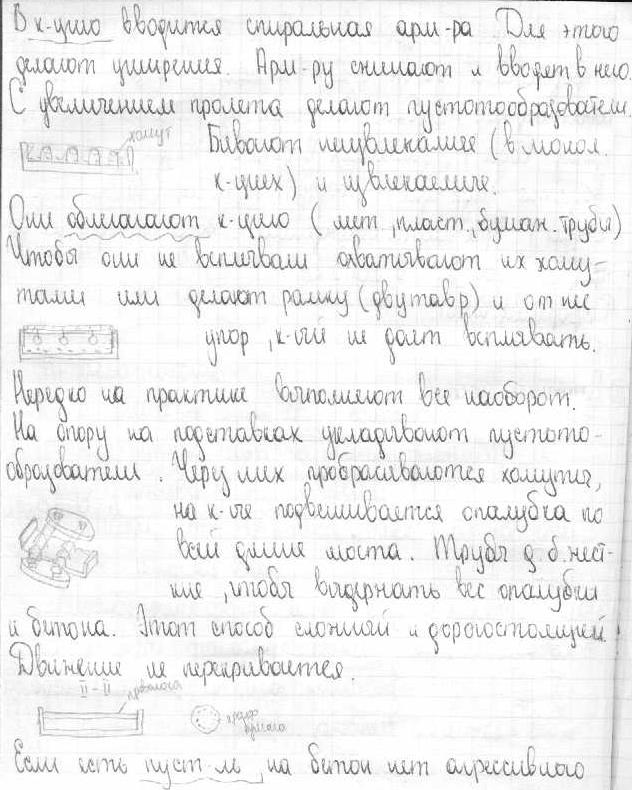 В к-цию вводится спиральная арм-ра. Для этого
делают уширения. Арм-ру снимают и вводят в него.
С увеличением пролета делают пустотообразователи.
хомут
Бывают неизвлекаемые (в монол.
к-циях) и извлекаемые.
Они облегчают к-цию (мет., пласт., бумаж. трубы)
Чтобы они не всплывали охватывают их хому-
тами или делают рамку (двутавр) и от нее
упор, к-ый не дает всплывать.
Нередко на практике выполняют все наоборот.
На опору на подставках укладывают пустото-
образователи. Через них пробрасываются хомуты,
на к-ые подвешивается опалубка по
всей длине моста. Трубы д.б. жест-
кие, чтобы выдержать вес опалубки
и бетона. Этот способ сложный и дорогостоящий.
Движение не перекрывается.
II-II
проволока
бумага
Если есть пуст-ль, на бетон нет агрессивного